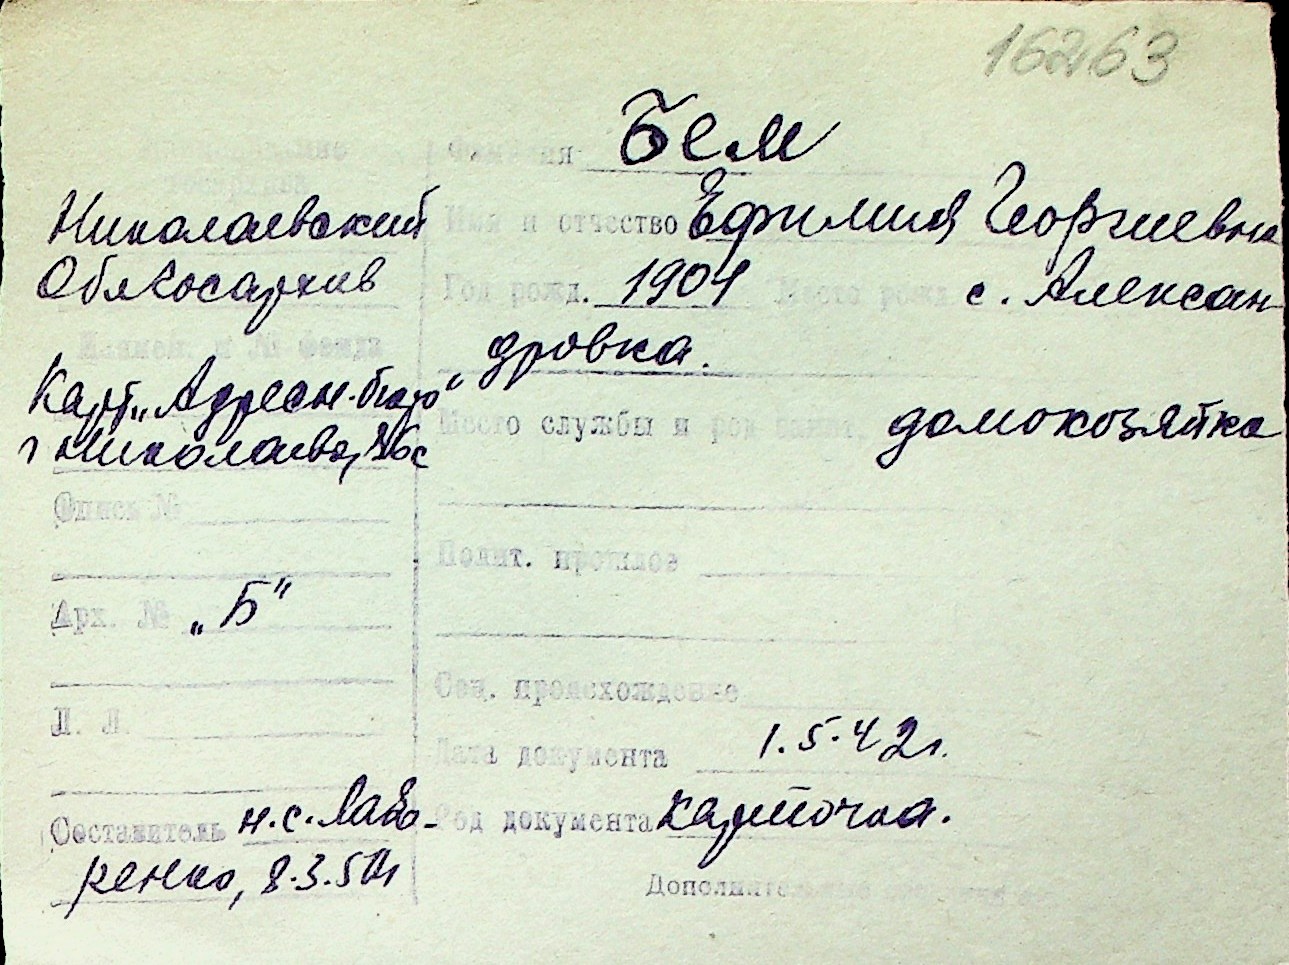 16263
Фамилия Бем
Николаевский
Облгосархив
Имя и отчество Ефимия Георгиевна
Год рожд. 1904 Место рожд. с. Алексан-
дровка.
Наимен. и № фонда
Карт. „Адресн. бюро"
г Николаева,
Место службы и род занят. домохозяйка
Опись №
Полит. прошлое
Арх. № „Б"
Соц. происхождение
Л. Л.
Дата документа 1.5.42 г.
Составитель н.с. Лав-
ренко, 8.3.50г
Род документа карточка.
Дополнительные